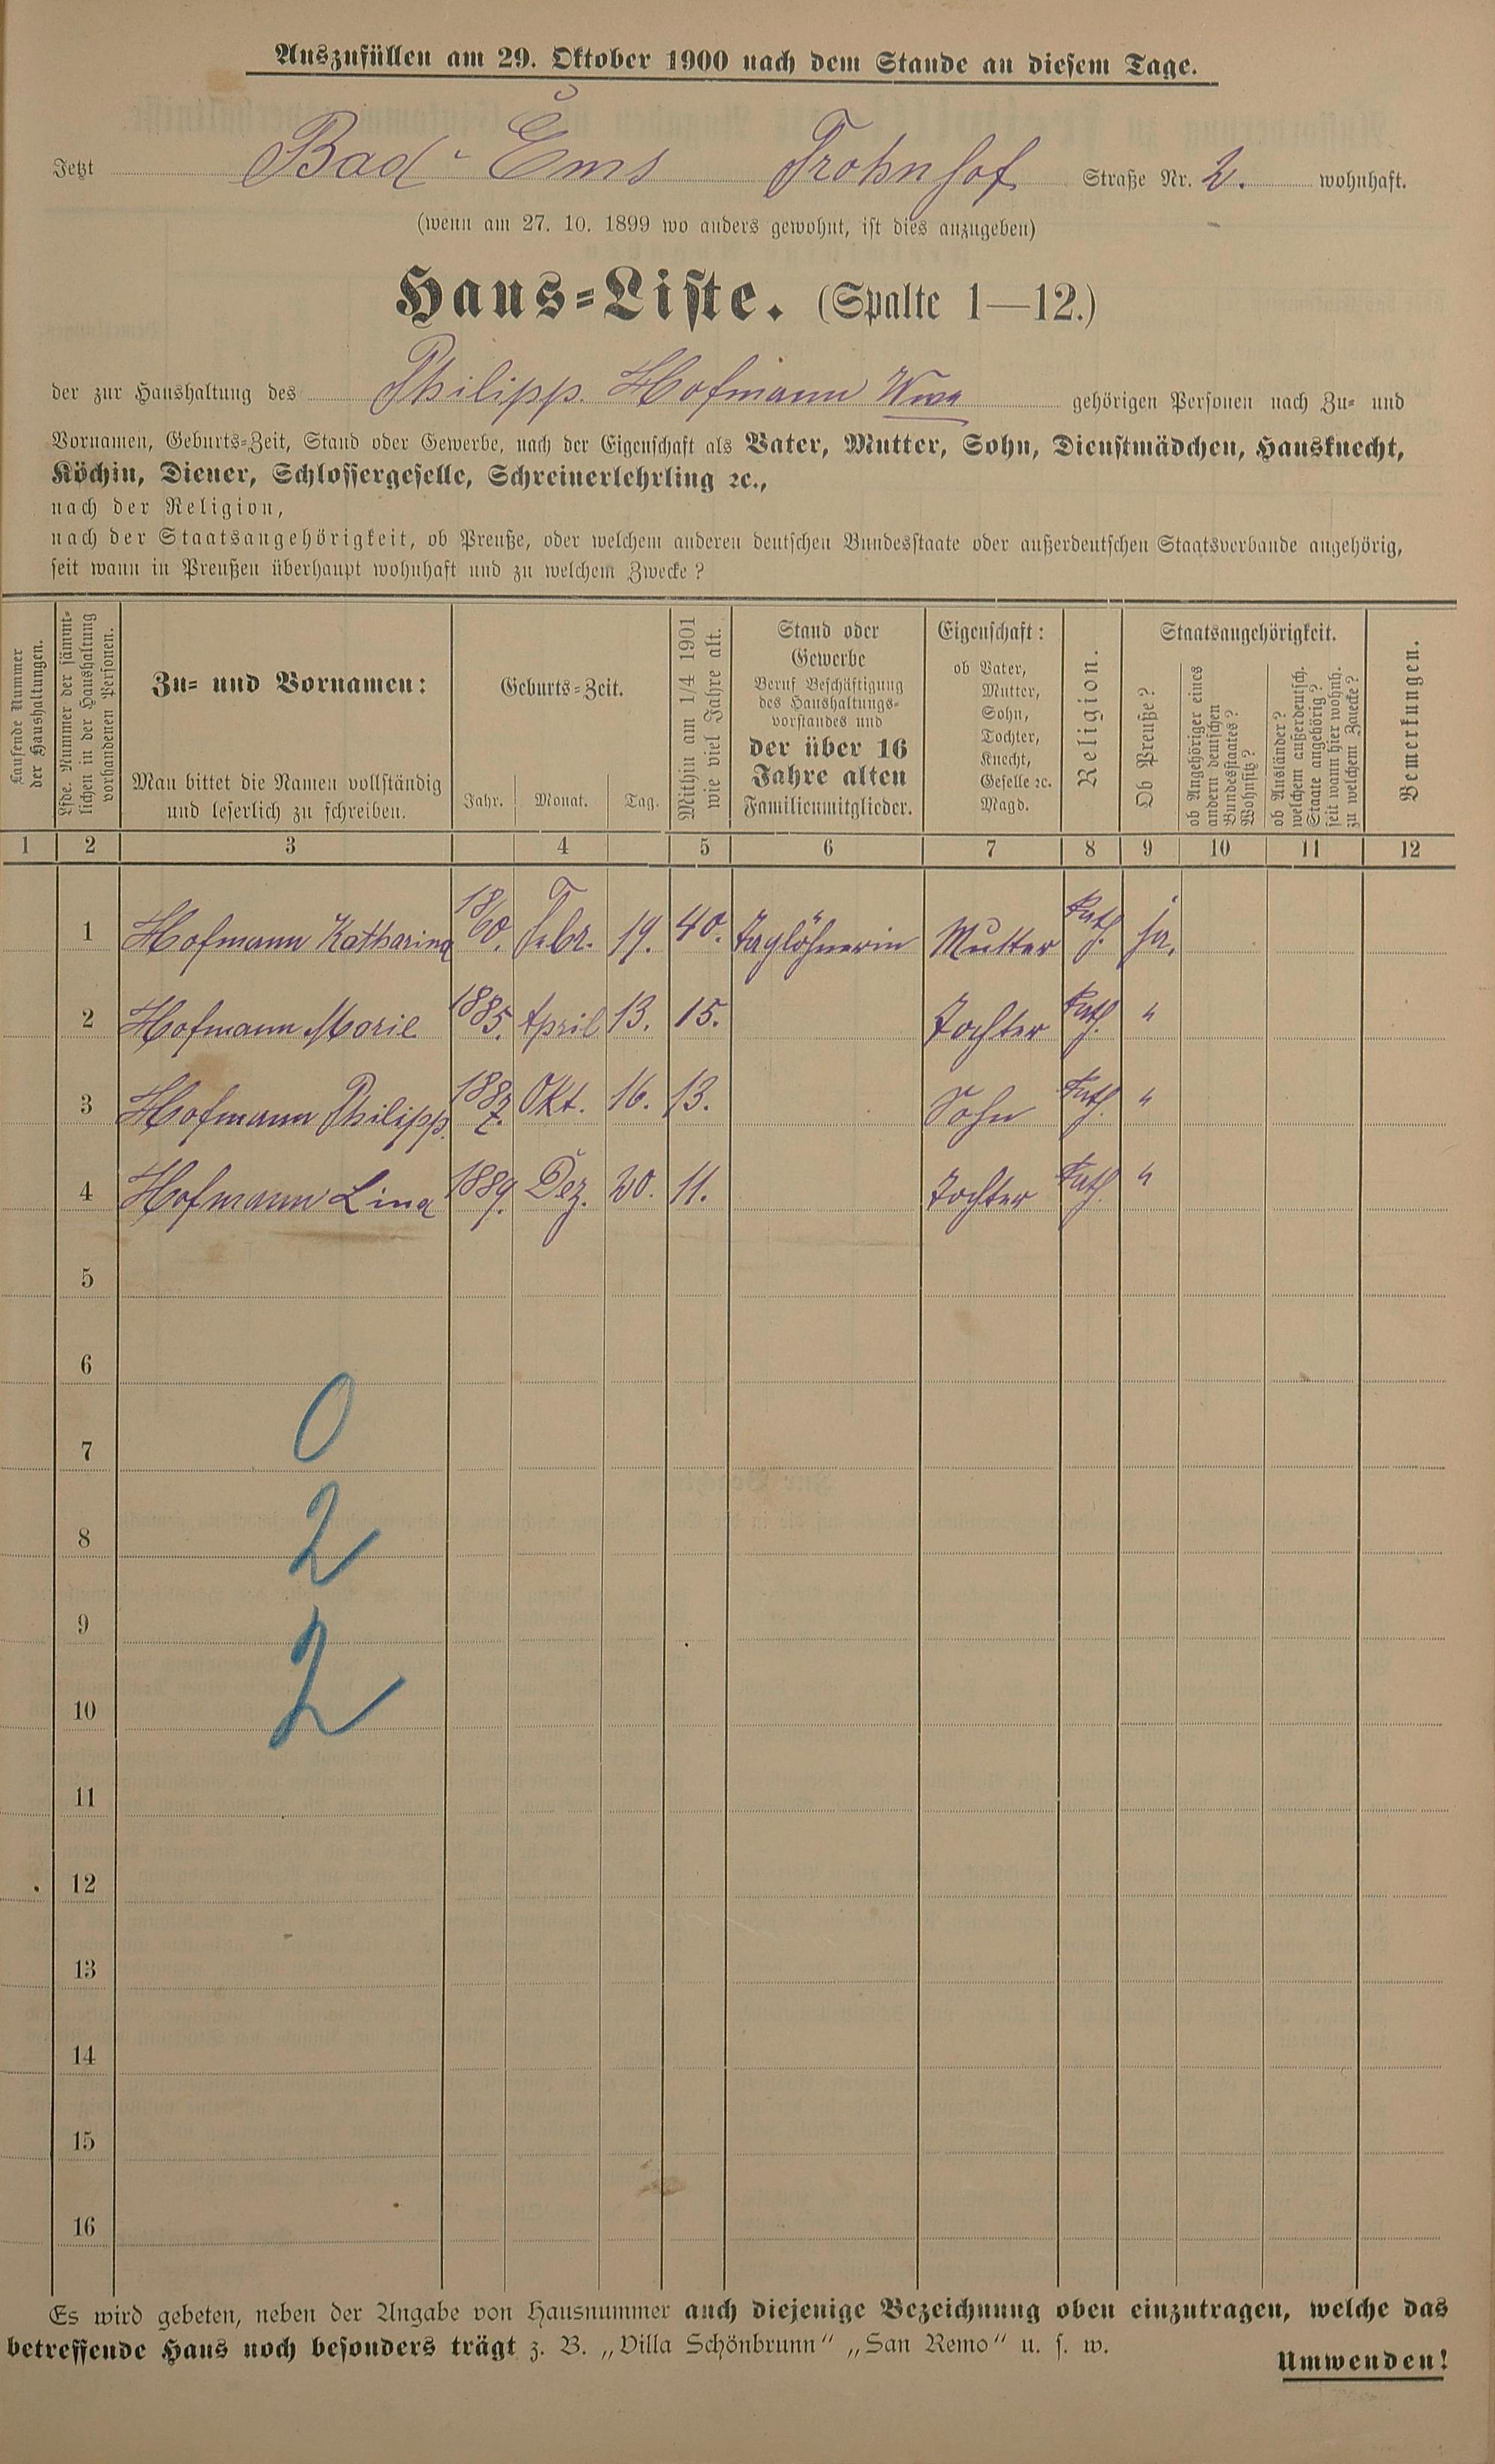 Auszufüllen am 29. Oktober 1900 nach dem Stande an diesem Tage.
Jetzt Bad-Ems Frohnhof Straße Nr. 2. wohnhaft.
(wenn am 27. 10. 1899 wo anders gewohnt, ist dies anzugeben)
Haus-Liste. (Spalte 1—12.)
der zur Haushaltung des Philipp. Hofmann Wwe gehörigen Personen nach Zu- und
Vornamen, Geburts-Zeit, Stand oder Gewerbe, nach der Eigenschaft als Vater, Mutter, Sohn, Dienstmädchen, Hausknecht,
Köchin, Diener, Schlossergeselle, Schreinerlehrling ꝛc.,
nach der Religion,
nach der Staatsangehörigkeit, ob Preuße, oder welchem anderen deutschen Bundesstaate oder außerdeutschen Staatsverbande angehörig,
seit wann in Preußen überhaupt wohnhaft und zu welchem Zwecke?
Laufende Nummer
der Haushaltungen.
Lfde. Nummer der sämmt-
lichen in der Haushaltung
vorhandenen Personen.
Zu- und Vornamen:
Man bittet die Namen vollständig
und leserlich zu schreiben.
Geburts-Zeit.
Jahr. Monat. Tag.
Mithin am 1/4 1901
wie viel Jahre alt.
Stand oder
Gewerbe
Beruf Beschäftigung
des Haushaltungs-
vorstandes und
der über 16
Jahre alten
Familienmitglieder.
Eigenschaft:
ob Vater,
Mutter,
Sohn,
Tochter,
Knecht,
Geselle ꝛc.
Magd.
Religion.
Staatsangehörigkeit.
Ob Preuße?
ob Angehöriger eines
andern deutschen
Bundesstaates?
Wohnsitz?
ob Ausländer?
welchem außerdeutsch.
Staate angehörig?
seit wann hier wohnh.
zu welchem Zwecke?
Bemerkungen.
1 2 3 4 5 6 7 8 9 10 11 12
1 Hofmann Katharina 1860. Febr. 19. 40. Taglöhnerin Mutter Kath. ja.
2 Hofmann Marie 1885. April 13. 15. Tochter Kath. "
3 Hofmann Philipp. 1887. Okt. 16. 13. Sohn Kath. "
4 Hofmann Lina 1889. Dez. 20. 11. Tochter Kath. "
5
6
0
7
2
8
9
2
10
11
12
13
14
15
16
Es wird gebeten, neben der Angabe von Hausnummer auch diejenige Bezeichnung oben einzutragen, welche das
betreffende Haus noch besonders trägt z. B. „Villa Schönbrunn“ „San Remo“ u. s. w.
Umwenden!